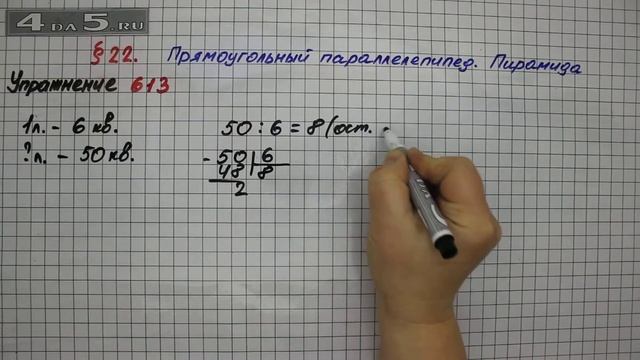 4DA5.RU
§22. Прямоугольный параллелепипед. Пирамида
Упражнение 613
1п. - 6 кв.
?п. - 50 кв.
50 : 6 = 8 (ост.
- 50 | 6
48 | 8
2